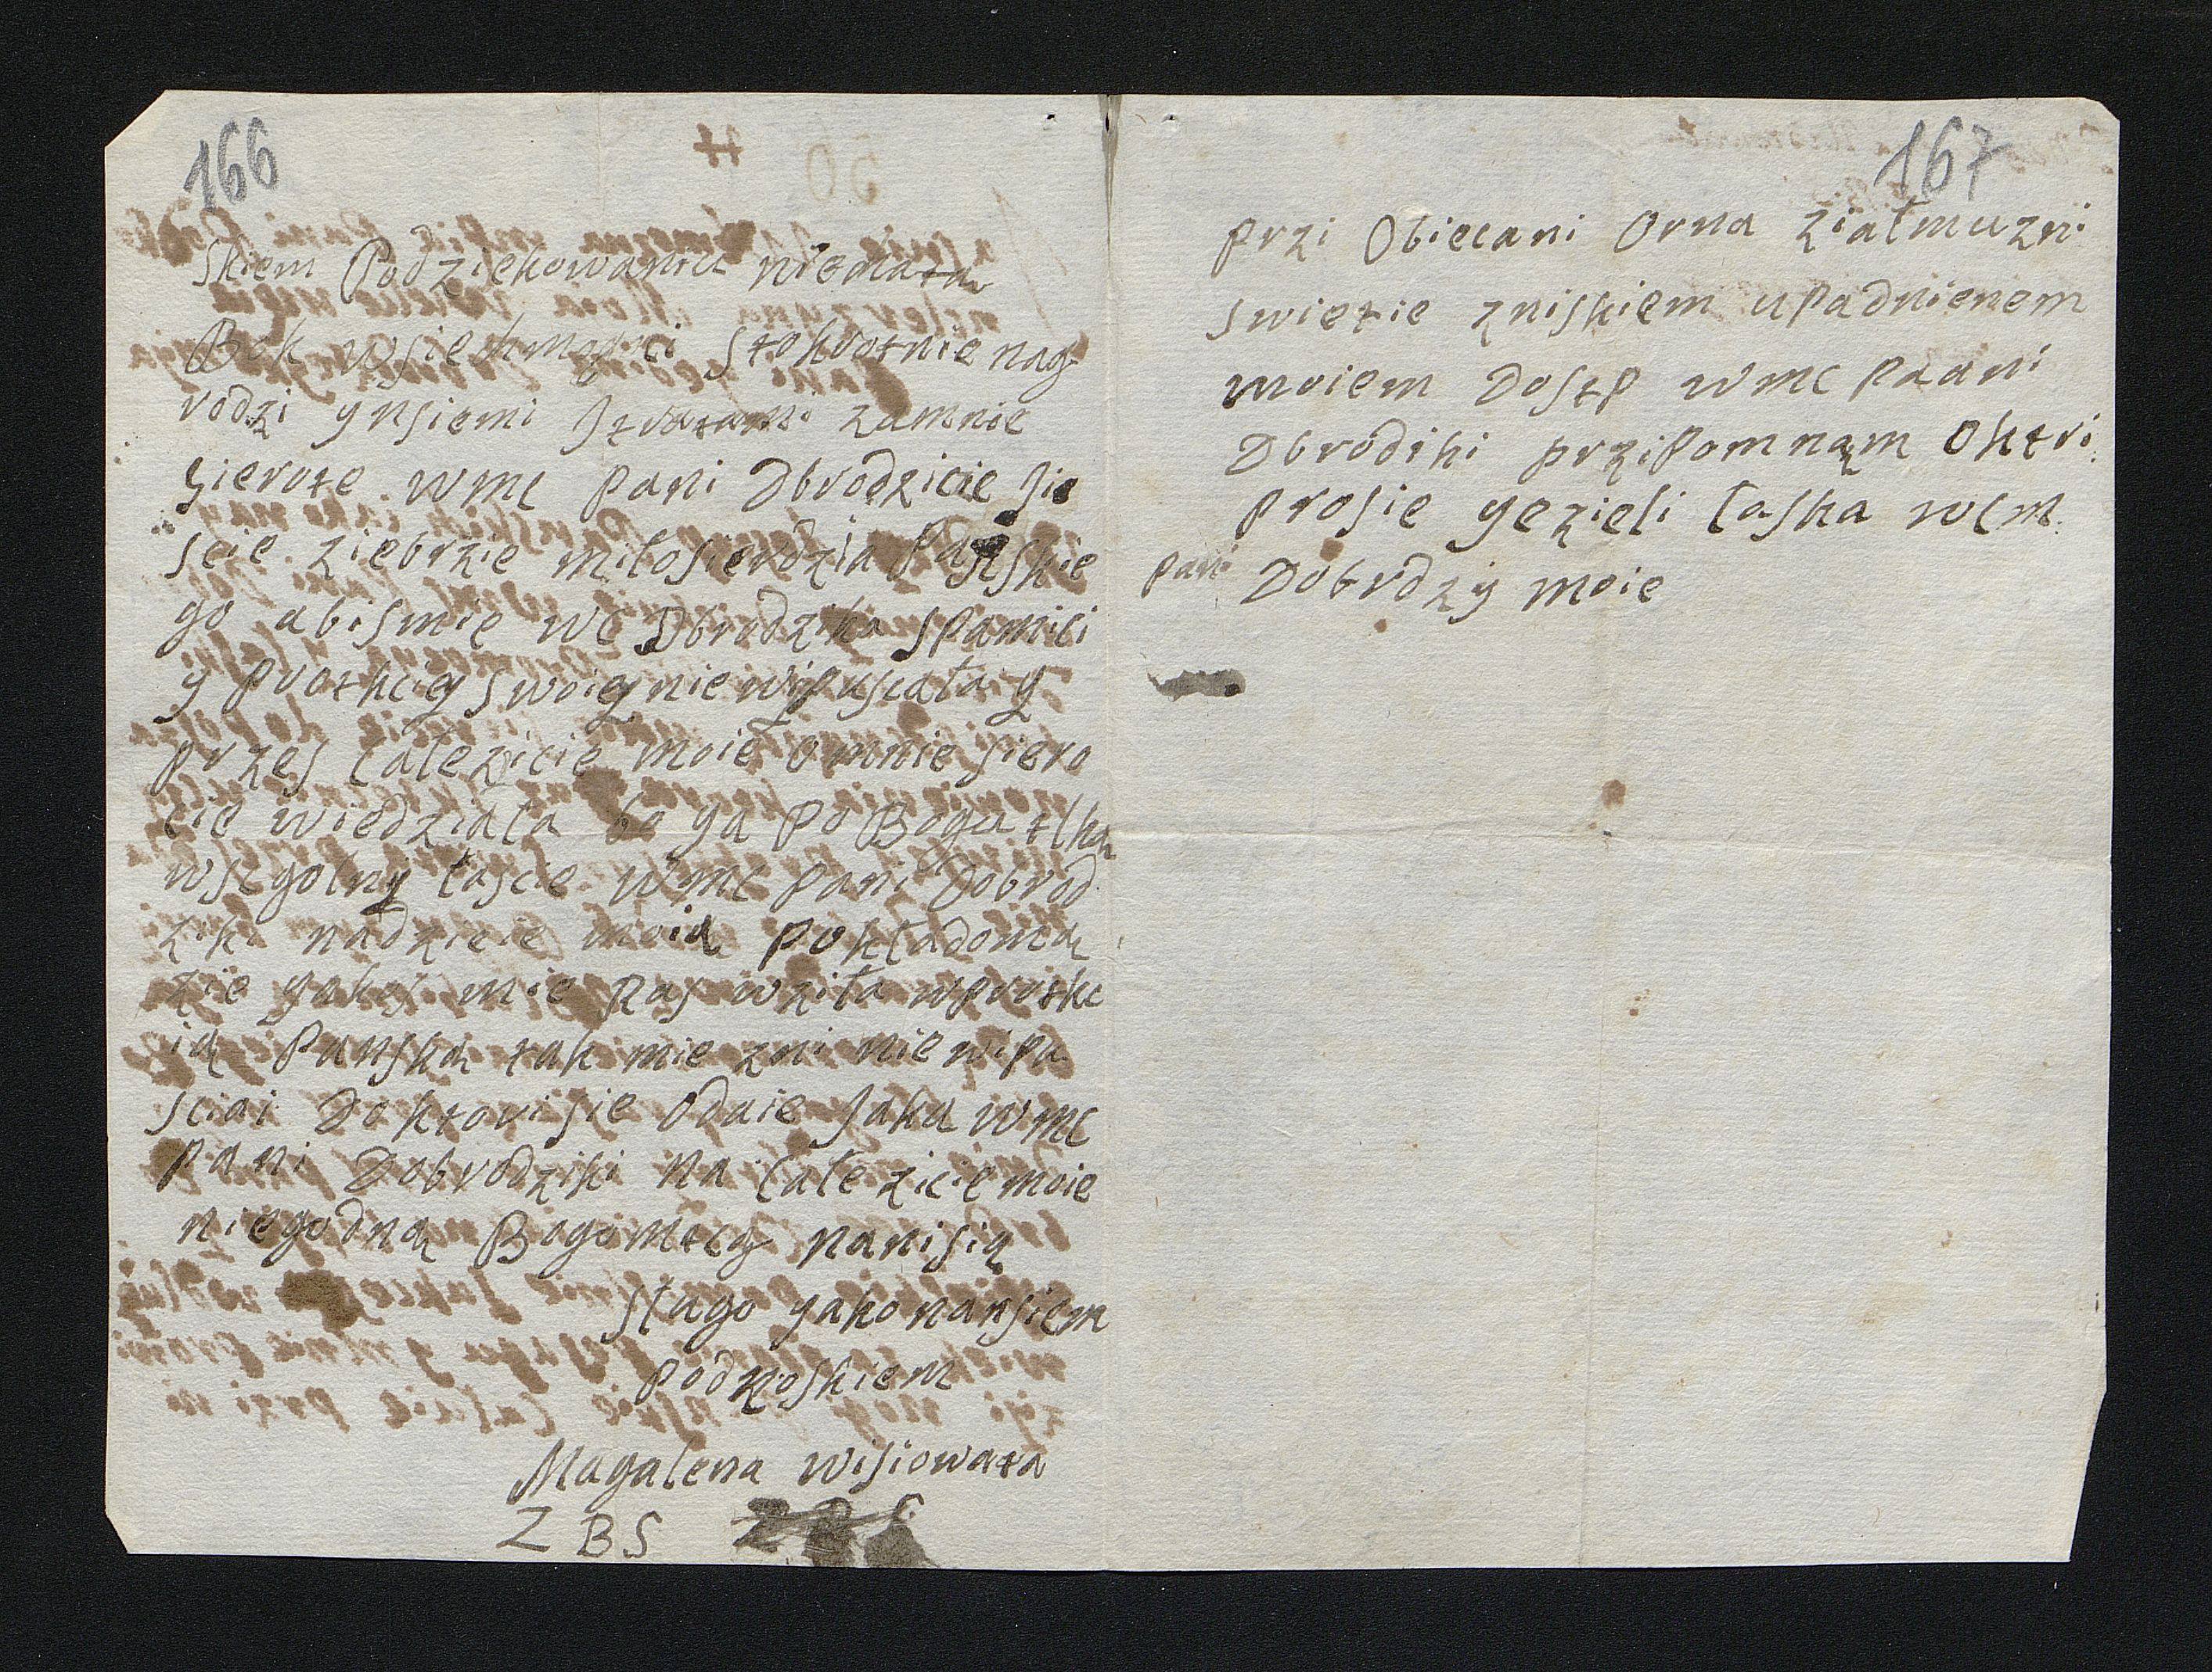 166
Skiem Podziekowaniu
Bok wsiehmogci stokrotnie nag
rodzi y nsiemi zamnie
sierote wmc pani Dbrodzicie sie
scie ziebrzie miłosierdzia Panskie
go abismie wc Dbrodzika spamici
y protkciey swoiey nie wipuscała y
przes całe zicie moie omnie siero
cie wiedziała bo ya po Bogu tlko
wscgolny łascie wmc pani Dobrod
ziki nadzieie moią pokładomą
zie yakes mie ras wziła wprotkc
ią Panską tak mie zni nie wipu
sciai Doktori sie odaie Jako wmc
pani Dobrodziki na całe zicie moie
niegodną Bogomtcą nanisią
sługo yako nansiem
podnoskiem
Magalena wisiowata
Z BS
167
przi Obiecani Orna ziałmuzni
swietie zniskiem upadnienem
moiem Dostp wmc pzani
Dbrodiki przipomnąm Oktri
prosie yezieli łaska wcm.
pani Dobrdzy moie